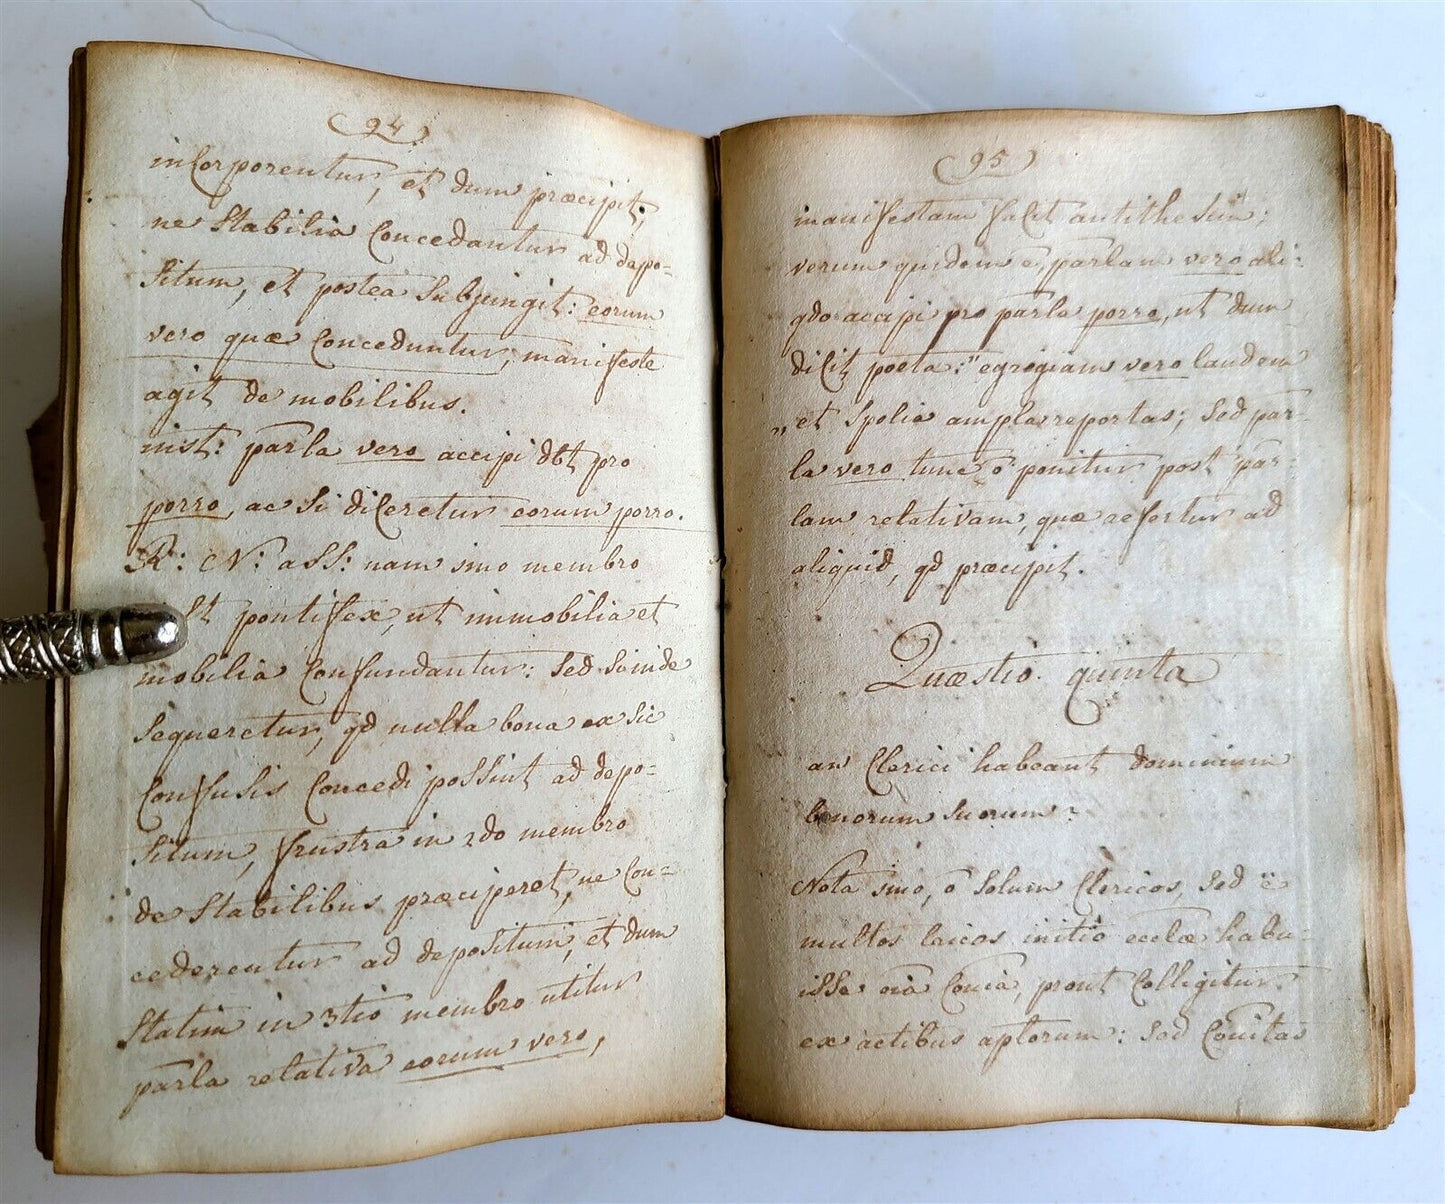 94
incorporentur, et dum præcipit,
ne stabilia concedantur ad depo=
situm, et postea subjungit: eorum
vero quæ conceduntur, manifeste
agit de mobilibus.
inst: parla vero accipi dbt pro
porro, ac si diceretur eorum porro.
R: N: ass: nam imo membro
pontifex, ut immobilia et
mobilia confundantur: sed inde
sequeretur, qd nulla bona ex sic
confusis concedi possint ad depo=
situm, frustra in 2do membro
de stabilibus præciperet, ne con=
cederentur ad depositum, et dum
statim in 3tio membro utitur
parla relativa eorum vero,
95
manifestam facit antithesin;
verum quidem e, parlam vero ali=
qdo accipi pro parla porro, ut dum
dicit poeta: "egregiam vero laudem
„et spolia ampla reportas; sed par=
la vero tunc o ponitur post par=
lam relativam, quæ refertur ad
aliquid, qd præcipit.
Quæstio quinta
an Clerici habeant dominium
bonorum suorum?
Nota imo, o solum Clericos, sed e
multos laicos initio ecclæ habu=
isse oia coia, prout colligitur
ex actibus aptorum: sed coitas